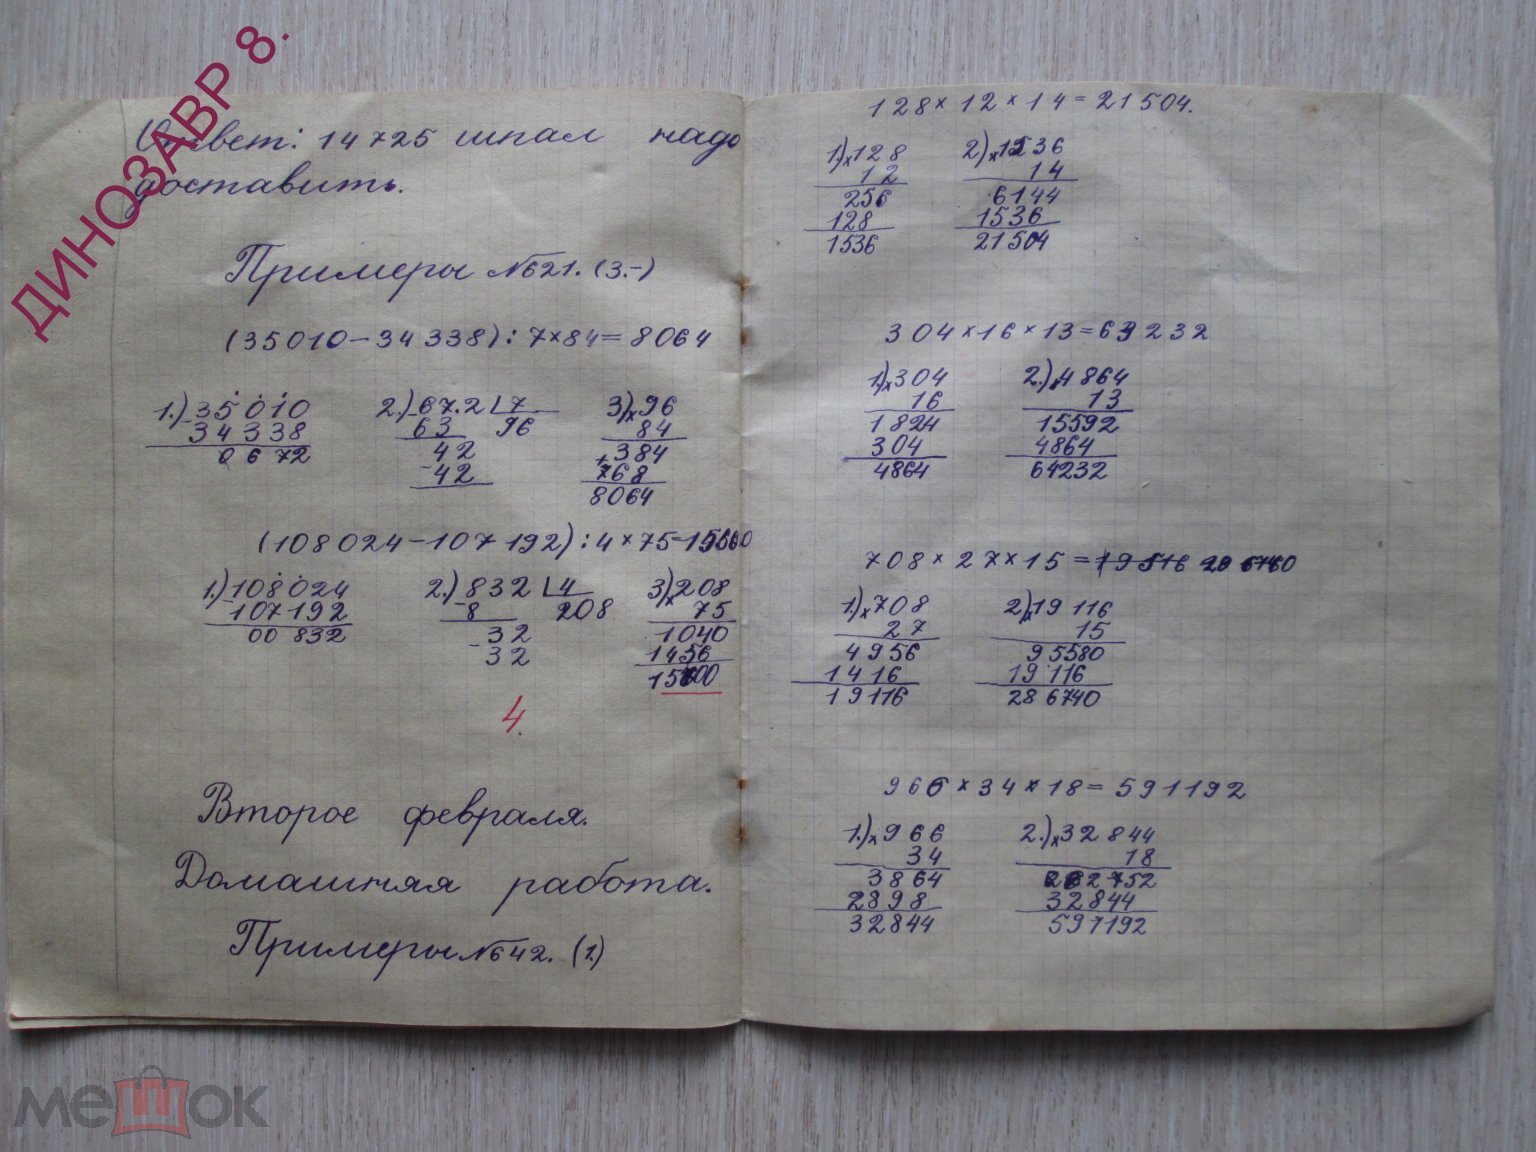 ДИНОЗАВР 8.
Ответ: 14725 шпал надо
доставить.
Примеры №621. (3.-)
(35010-34338):7×84=8064
1.) 35010
- 34338
0672
2.) 672 7
- 63 96
42
- 42
3) × 96
84
+ 384
768
8064
(108024-107192):4×75=15600
1.) 108024
- 107192
00832
2.) 832 4
- 8 208
32
- 32
3) × 208
75
1040
1456
15600
4.
Второе февраля.
Домашняя работа.
Примеры №642. (1.)
128×12×14=21504.
1.) × 128
12
256
128
1536
2.) × 1536
14
6144
1536
21504
304×16×13=63232
1.) × 304
16
1824
304
4864
2.) × 4864
13
15592
4864
64232
708×27×15= 286740
1.) × 708
27
4956
1416
19116
2) × 19116
15
95580
19116
286740
966×34×18=591192
1.) × 966
34
3864
2898
32844
2.) × 32844
18
262752
32844
597192
мешок